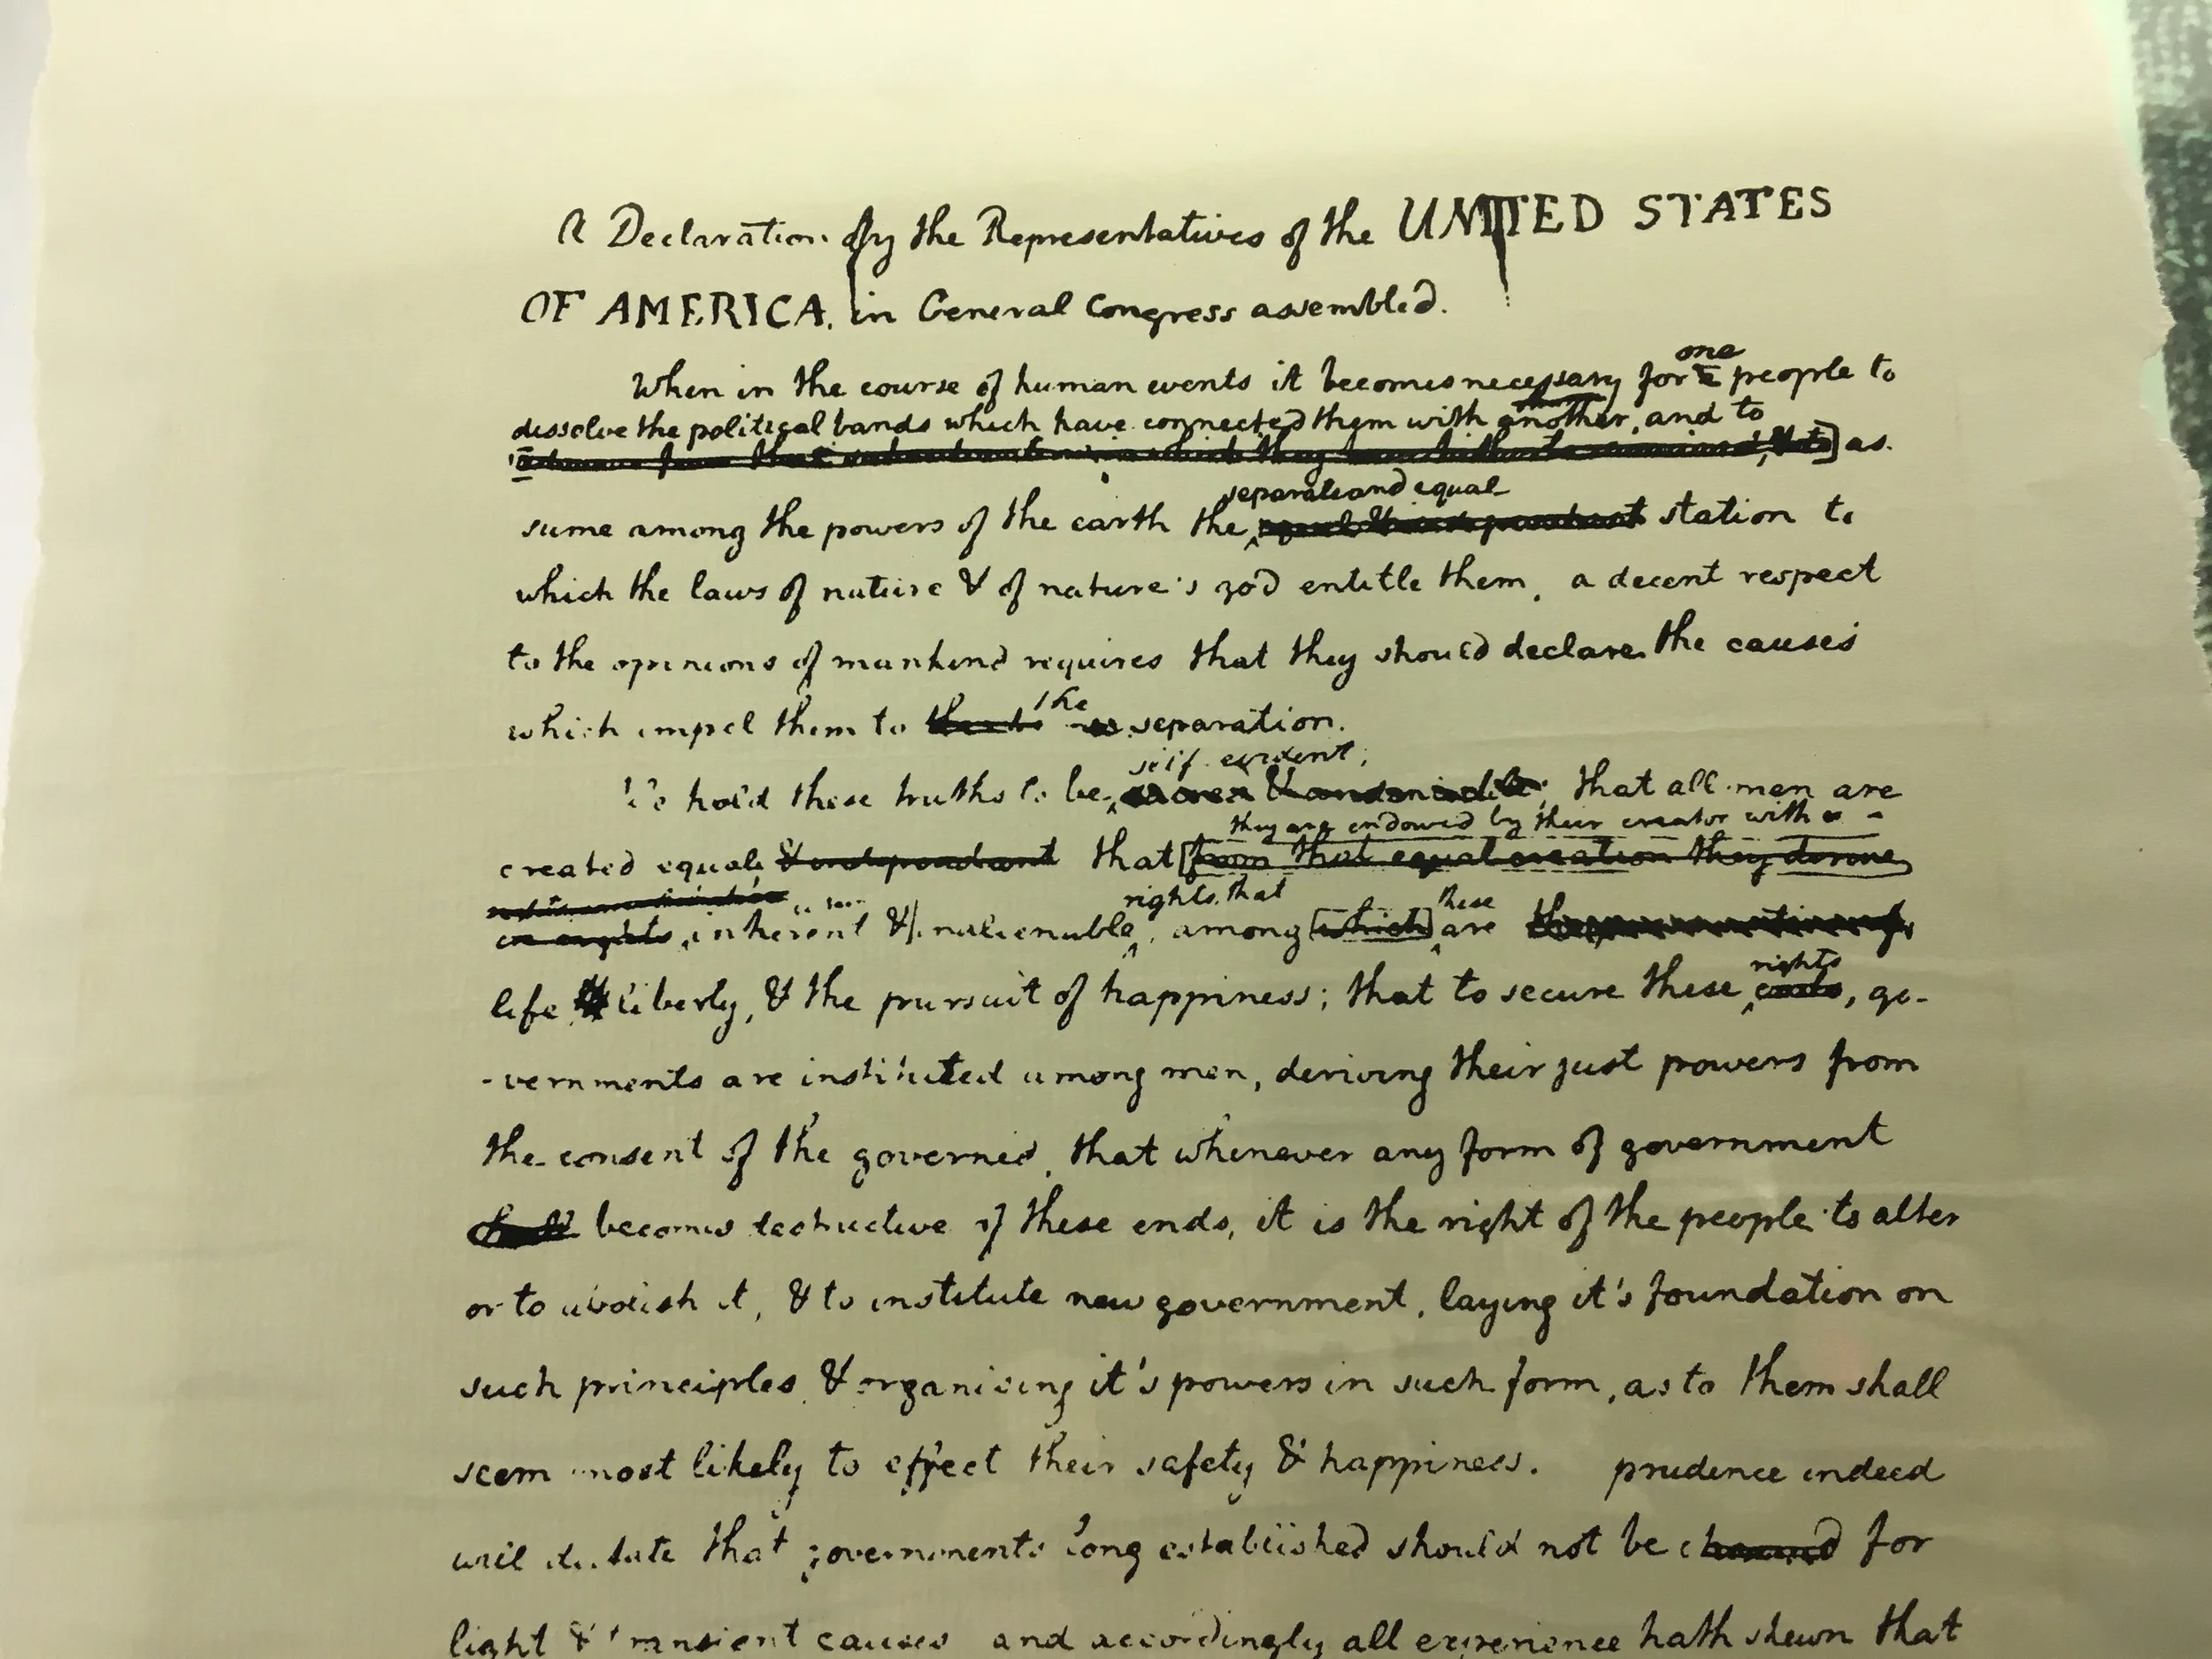 A Declaration by the Representatives of the UNITED STATES
OF AMERICA, in General Congress assembled.
one
When in the course of human events it becomes necessary for a people to
dissolve the political bands which have connected them with another, and to
which they have hitherto remained, & to] as
separate and equal
sume among the powers of the earth the equal & independant station to
which the laws of nature & of nature's god entitle them, a decent respect
to the opinions of mankind requires that they should declare the causes
the
which impel them to separation.
self evident;
We hold these truths to be sacred & undeniable; that all men are
they are endowed by their creator with
created equal & independant that [from that equal creation they derive
rights that these
in rights inherent & inalienable, among [which] are
rights
life liberty, & the pursuit of happiness; that to secure these ends, go-
-vernments are instituted among men, deriving their just powers from
the consent of the governed, that whenever any form of government
shall becomes destructive of these ends, it is the right of the people to alter
or to abolish it, & to institute new government, laying it's foundation on
such principles & organising it's powers in such form, as to them shall
seem most likely to effect their safety & happiness. prudence indeed
will dictate that governments long established should not be changed for
light & transient causes and accordingly all experience hath shewn that